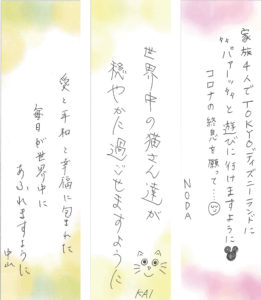 家族4人でTOKYOディズニーランドに
"パァーッ"と遊びに行けますように
コロナの終息を願って…
NODA
世界中の猫さん達が
穏やかに過ごせますように
KAI
愛と平和と幸福に包まれた
毎日が世界中に
あふれますように
中山